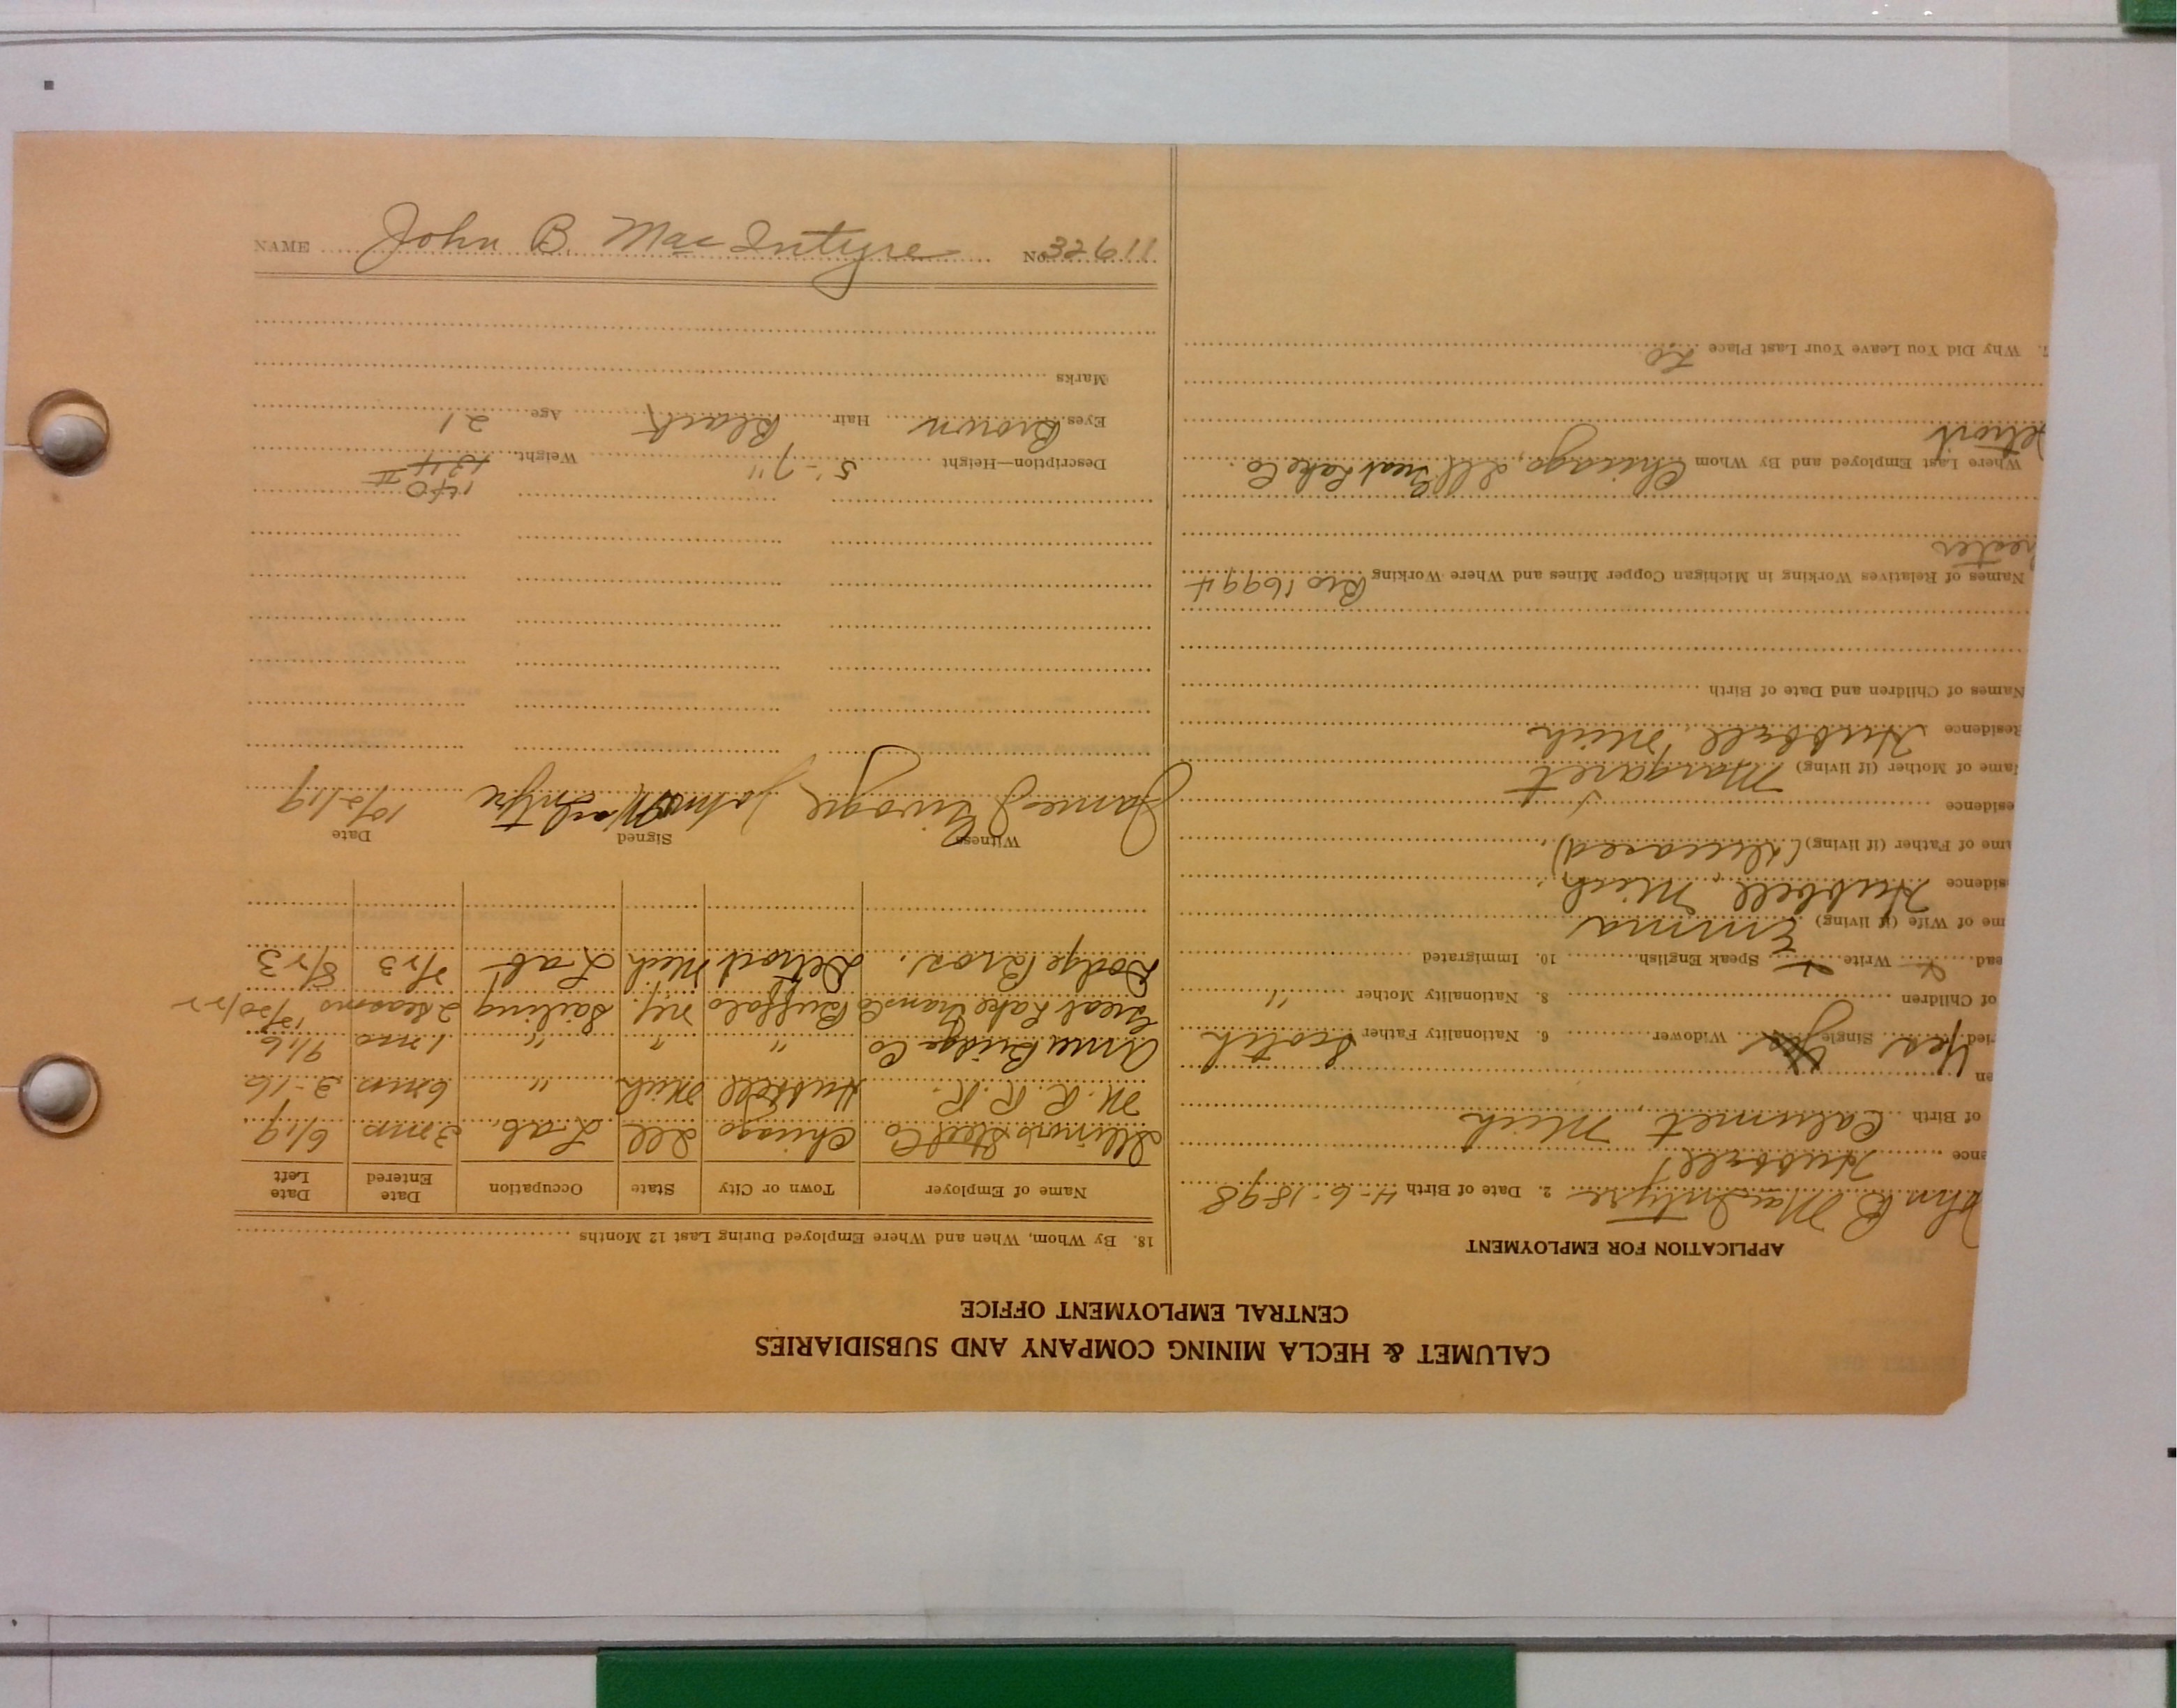 CALUMET & HECLA MINING COMPANY AND SUBSIDIARIES
CENTRAL EMPLOYMENT OFFICE
APPLICATION FOR EMPLOYMENT
ohn B MacIntyre 2. Date of Birth 4-6-1898
ence Hubbell
of Birth Calumet, Mich
en
ried Yes Single Yes Widower 6. Nationality Father Scotch
of Children 8. Nationality Mother "
ead Write Speak English 10. Immigrated
me of Wife (if living) Emma
sidence Hubbell, Mich.
ame of Father (if living) (Deceased)
esidence
ame of Mother (if living) Margaret
Residence Hubbell, Mich
Names of Children and Date of Birth
Names of Relatives Working in Michigan Copper Mines and Where Working Bro 16994
Where Last Employed and By Whom Chicago, Ill Great Lake Co.
etroit
7. Why Did You Leave Your Last Place
18. By Whom, When and Where Employed During Last 12 Months
Name of Employer Town or City State Occupation Date Entered Date Left
Illinois Steel Co Chicago Ill Lab. 3 mos 6/19
M. R. R. R. Hubbell Mich " 6 mos 3-16
Amer Bridge Co " " " 1 mo 9/16
Great Lake Trans Co Buffalo N.Y. Sailing 2 seasons 12/20/22
Dodge Bros. Detroit Mich Lab 7/23 8/23
Witness Signed Date
James John B MacIntyre 10/2/19
140
Description—Height 5'-7" Weight 134 #
Eyes Brown Hair Black Age 21
Marks
NAME John B. MacIntyre No. 32611